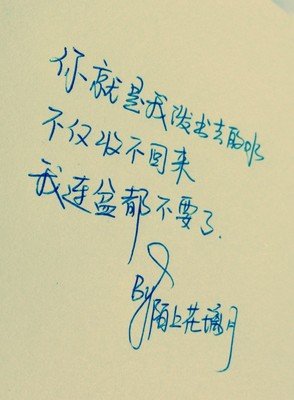 你就是我泼出去的水
不仅收不回来
我连盆都不要了.
By
陌上花满月